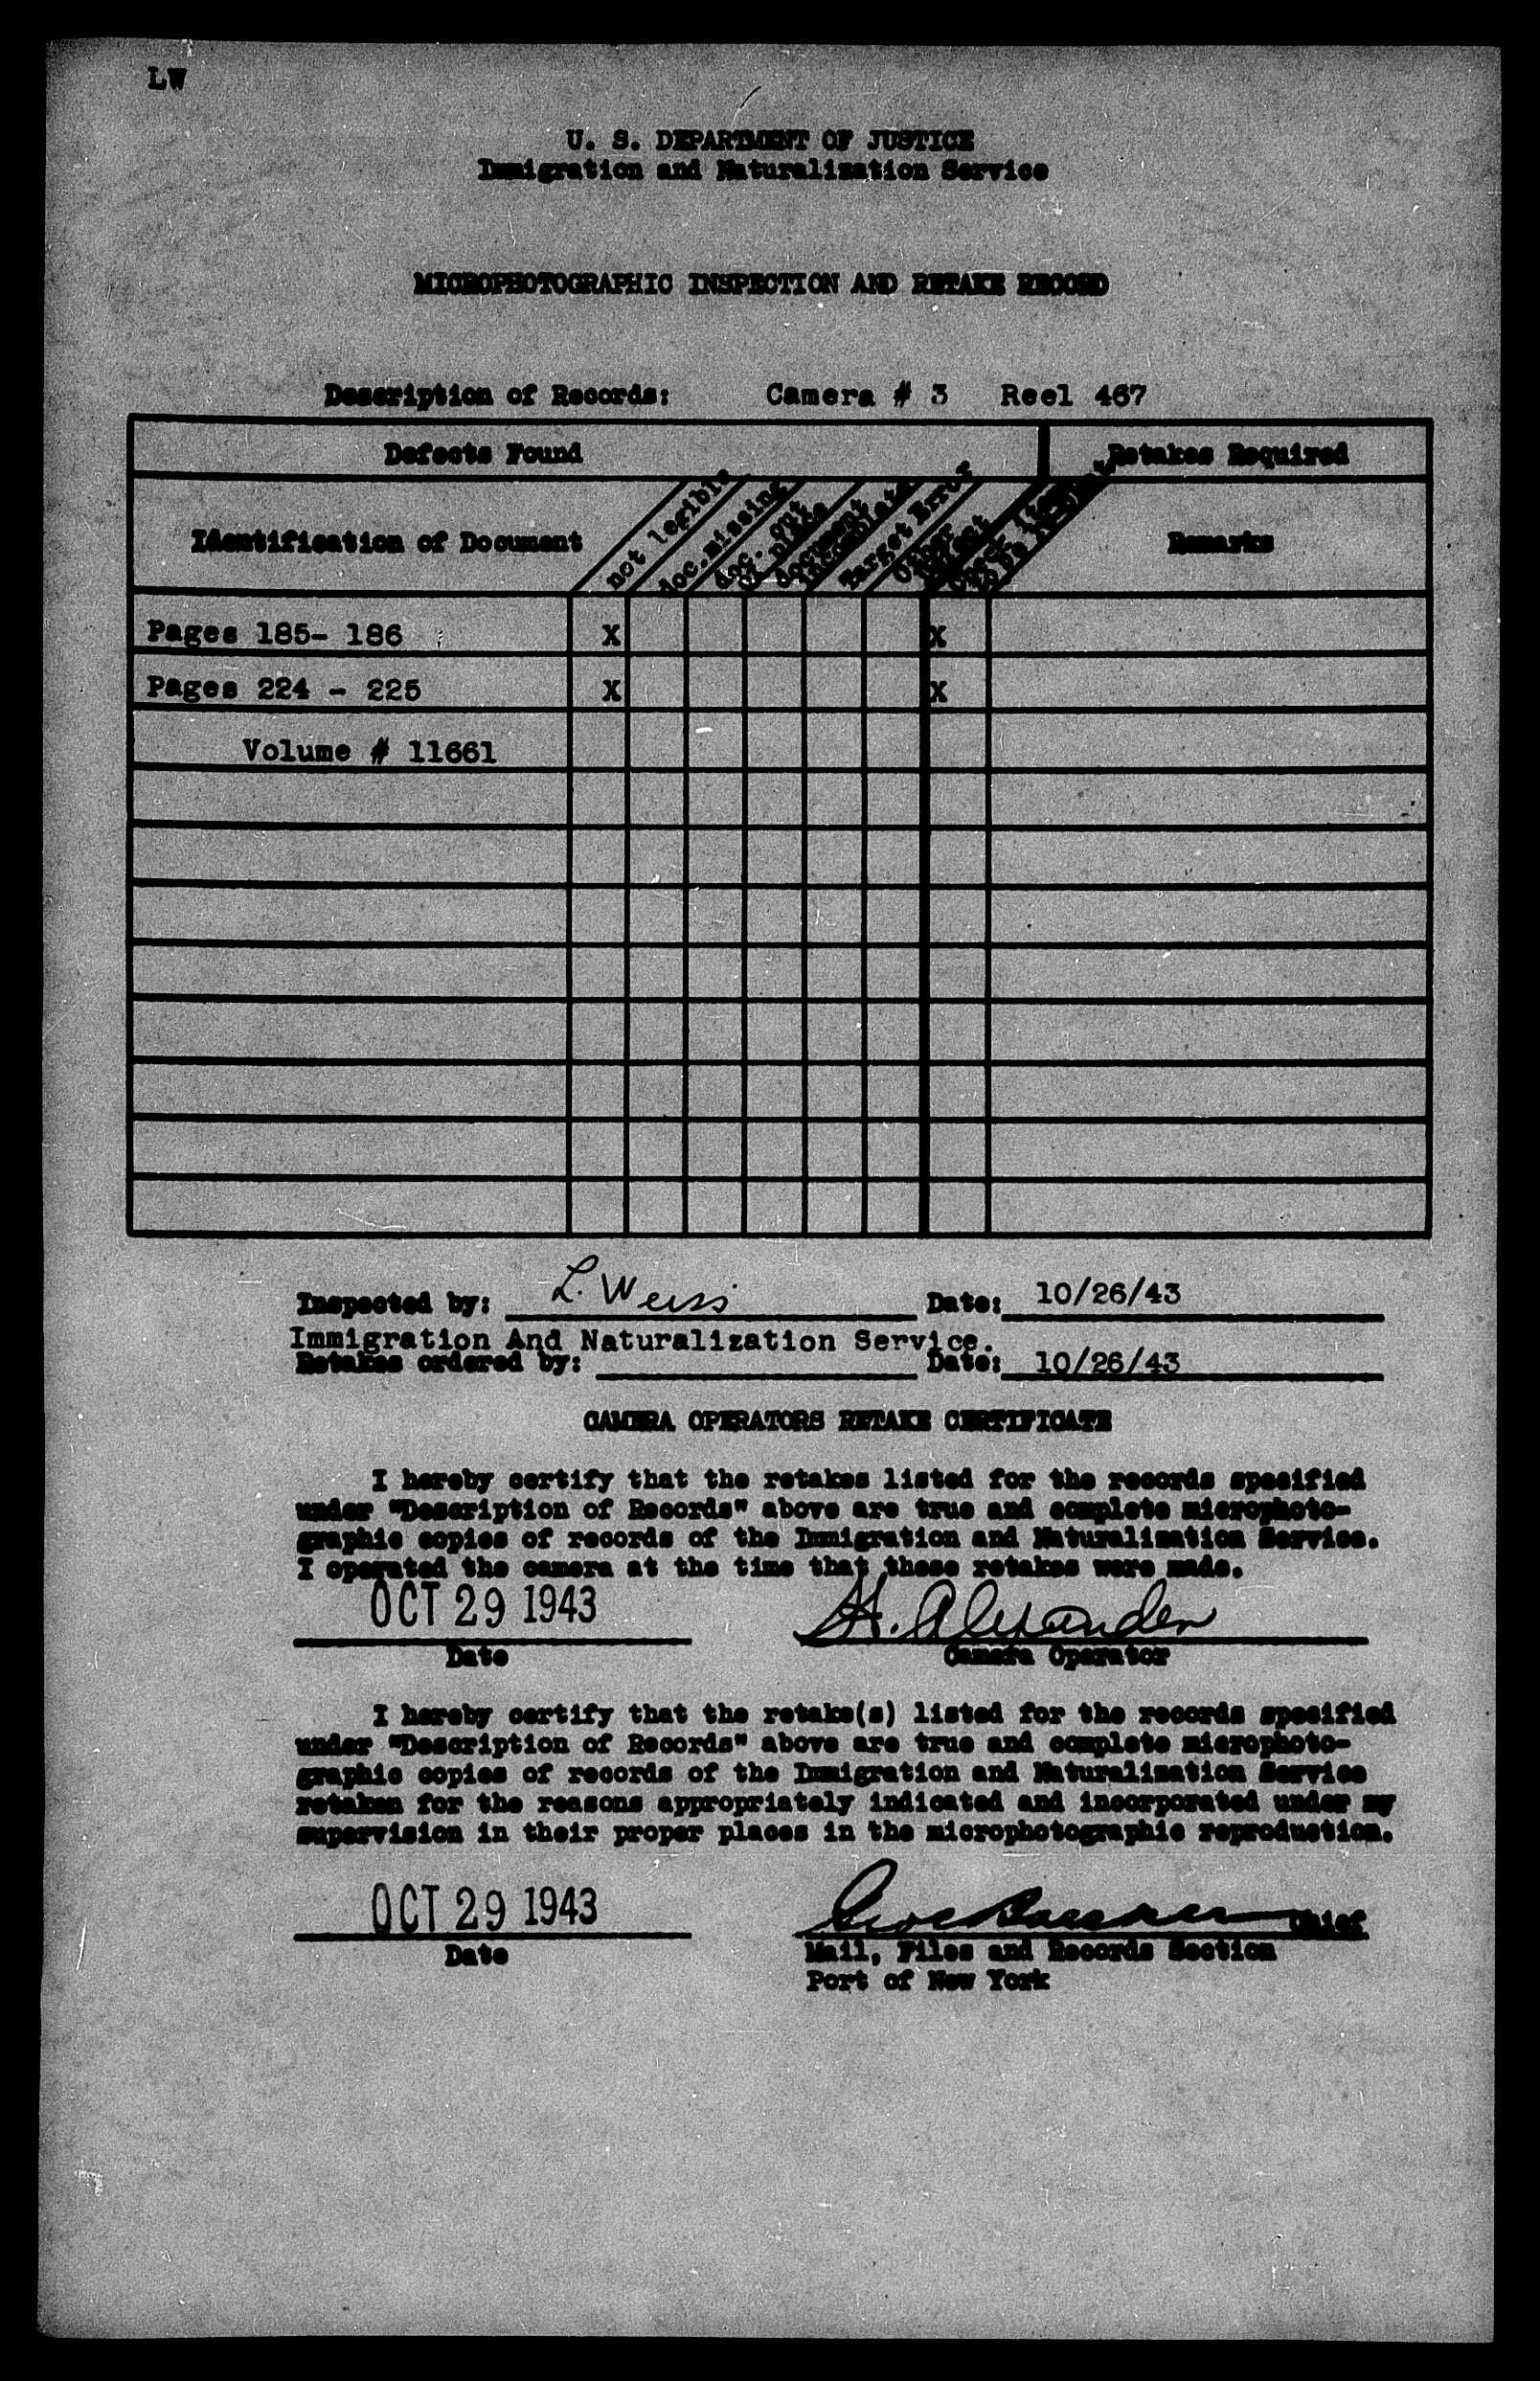 LW
U. S. DEPARTMENT OF JUSTICE
Immigration and Naturalization Service
MICROPHOTOGRAPHIC INSPECTION AND RETAKE RECORD
Description of Records: Camera # 3 Reel 467
Defects Found Retakes Required
Identification of Document not legible doc. missing doc. out of place document incomplete Target Error Other Remarks
Pages 185- 186 X X
Pages 224 - 225 X X
Volume # 11661
Inspected by: L. Weiss Date: 10/26/43
Immigration And Naturalization Service.
Retakes ordered by: Date: 10/26/43
CAMERA OPERATORS RETAKE CERTIFICATE
I hereby certify that the retakes listed for the records specified
under "Description of Records" above are true and complete microphoto-
graphic copies of records of the Immigration and Naturalization Service.
I operated the camera at the time that these retakes were made.
OCT 29 1943 H. Alexander
Date Camera Operator
I hereby certify that the retake(s) listed for the records specified
under "Description of Records" above are true and complete microphoto-
graphic copies of records of the Immigration and Naturalization Service
retaken for the reasons appropriately indicated and incorporated under my
supervision in their proper places in the microphotographic reproduction.
OCT 29 1943 Chief
Date Mail, Files and Records Section
Port of New York